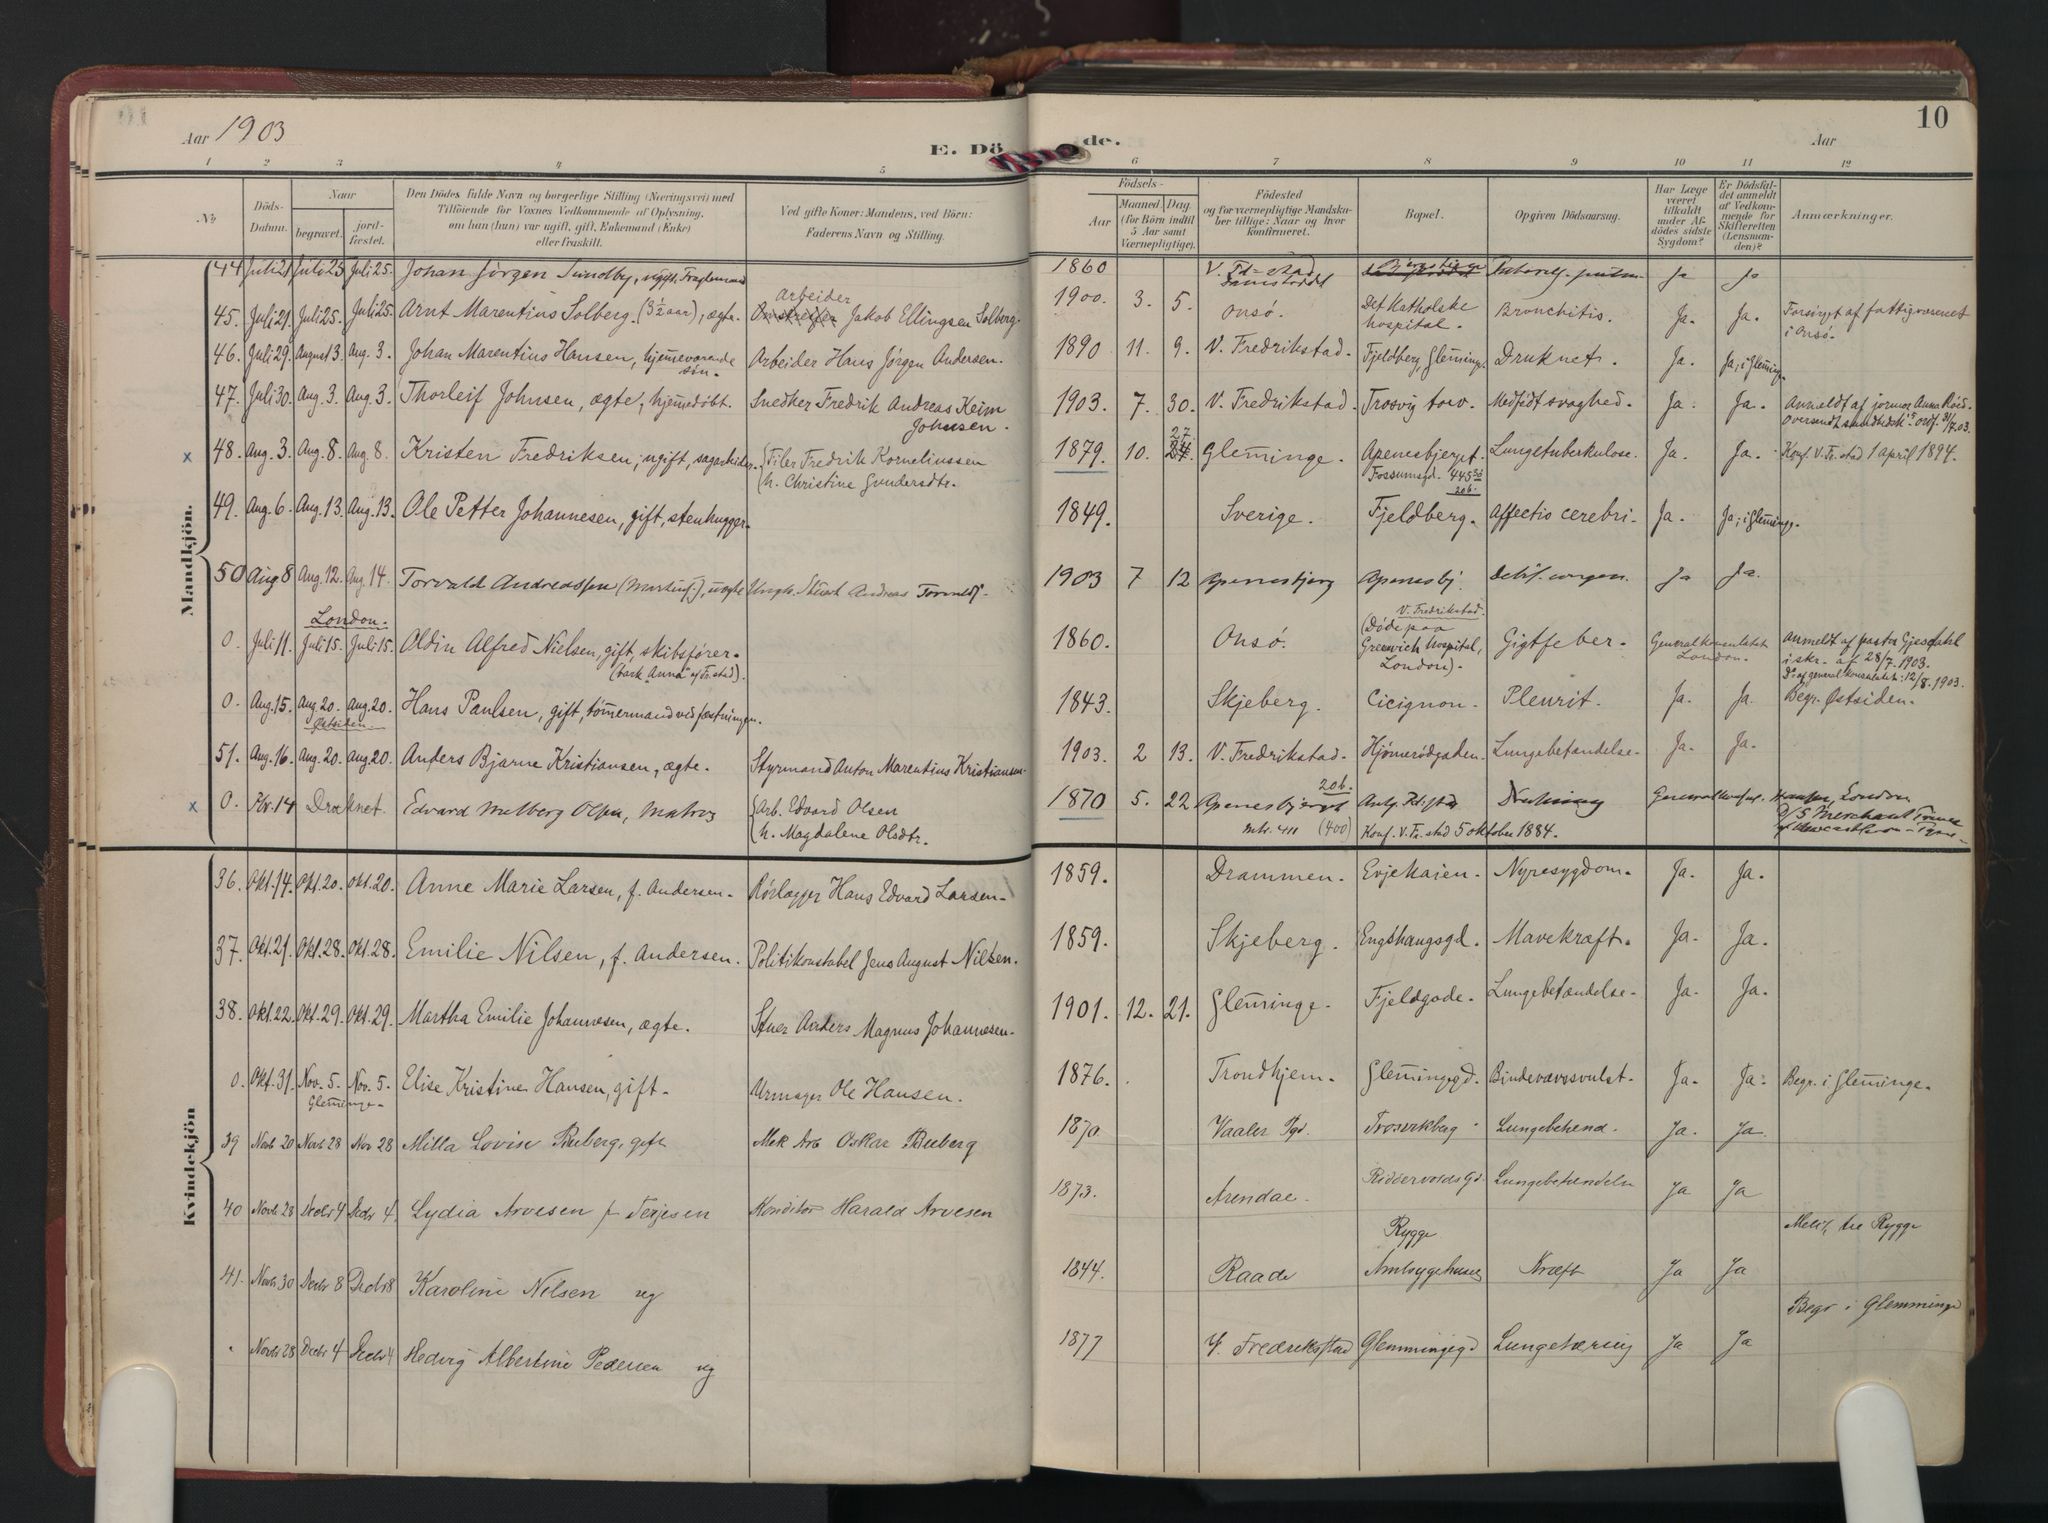 Aar 1903
E. Döde.
Aar
10
1 2 3 4 5 6 7 8 9 10 11 12
№
Döds-Datum.
Naar
begravet. jord-fæstet.
Den Dödes fulde Navn og borgerlige Stilling (Næringsvei) med
Tilföiende for Voxnes Vedkommende af Oplysning,
om han (hun) var ugift, gift, Enkemand (Enke)
eller fraskilt.
Ved gifte Koner: Mandens, ved Börn:
Faderens Navn og Stilling.
Födsels-
Aar
Maaned. Dag.
(for Börn indtil
5 Aar samt
Værnepligtige).
Födested
og for værnepligtige Mandska-
ber tillige: Naar og hvor
konfirmeret.
Bopæl.
Opgiven Dödsaarsag.
Har Læge
været
tilkaldt
under Af-
dödes sidste
Sygdom?
Er Dödsfal-
det anmeldt
af Vedkom-
mende for
Skifteretten
(Lensman-
den)?
Anmærkninger.
Mandkjön.
44 Juli 21 Juli 25 Juli 25. Johan Jörgen Sundby, ugift, 1860 V. Fd-stad Ja Ja
45. Juli 21. Juli 25. Juli 25. Arnt Marentius Solberg. (3½ aar), ægte. Arbeider Jakob Ellingsen Solberg. 1900. 3. 5. Onsö. Det Katholske hospital. Bronchitis. Ja. Ja. Forsörget af fattigvæsenet i Onsö.
46. Juli 29. August 3. Aug. 3. Johan Marentius Hansen, hjemmeværende sön. Arbeider Hans Jörgen Andersen. 1890 11. 9. V. Fredrikstad. Fjeldberg, Glemminge. Druknet. Ja. Ja, i Glemminge.
47. Juli 30. Aug. 3. Aug. 3. Thorleif Johnsen, ægte, hjemmedöbt. Snedker Fredrik Andreas Keim Johnsen. 1903. 7. 30. V. Fredrikstad. Trosvig torv. Medfödt svaghed. Ja. Ja. Anmeldt af jormor Anna
x 48. Aug. 3. Aug. 8. Aug. 8. Kristen Fredriksen, ugift, sagarbeider. Filer Fredrik Korneliussen h. Christine Gundersdtr. 1879. 10. 27 Glemminge. Apenesbjerget. Fossumsgd. Lungetuberkulose. Ja. Ja. Konf. V. Fr.stad 1 April 1894.
49. Aug. 6. Aug. 13. Aug. 13. Ole Petter Johannesen, gift, stenhugger. 1849. Sverige. Fjeldberg. Affectio cerebri. Ja. Ja, i Glemminge.
50 Aug 8 Aug. 12. Aug. 14. Torvald Andreassen, uægte Ungk. Andreas 1903 7 12 Apenesbjerg Apenesbj. Debil. congen. Ja Ja.
London.
0. Juli 11. Juli 15. Juli 15. Oldin Alfred Nielsen, gift, skibsförer. (bark "Anna" af Fr.stad). 1860. Onsö. V. Fredrikstad. (Döde paa Greenwich Hospital, London). Gigtfeber. Generalkonsulatet London. Anmeldt af pastor Gjesdahl i skr. af 28/7. 1903. Do af generalkonsulatet: 12/8. 1903.
0. Aug. 15. Aug. 20 Aug. 20. Östsiden. Hans Paulsen, gift, tömermand ved fæstningen. 1843. Skjeberg. Cicignon. Pleurit. Ja. Ja. Begr. Östsiden.
51. Aug. 16. Aug. 20. Aug. 20. Anders Bjarne Kristiansen, ægte. Styrmand Anton Marentius Kristiansen. 1903. 2 13. V. Fredrikstad. Hjömerödgaden. Lungebetændelse. Ja. Ja.
x 0. Fbr. 14 Drocknet. Edvard Melberg Olsen, Matros Arb. Edvard Olsen h. Magdalene Olsdtr. 1870 5. 22 Apenesbjerget 20b. mtr. 411 (400) Konf. V. Fr.stad 5 oktober 1884. Drukning Generalkonsul. London D/S Merchant
Kvindekjön
36. Okt. 14. Okt. 20. Okt. 20. Anne Marie Larsen, f. Andersen. Rörlægger Hans Edvard Larsen. 1859. Drammen. Evjekaien. Nyresygdom. Ja. Ja.
37. Okt. 21. Okt. 28. Okt. 28. Emilie Nilsen, f. Andersen. Politikonstabel Jens August Nilsen. 1859. Skjeberg. Engshaugsgd. Mavekræft. Ja. Ja.
38. Okt. 22. Okt. 29. Okt. 29. Martha Emilie Johannesen, ægte. Stuer Anders Magnus Johannesen. 1901. 12. 21. Glemminge. Fjeldgade. Lungebetændelse. Ja. Ja.
0. Okt. 31. Nov. 5. Nov. 5. Glemminge. Elise Kristine Hansen, gift. Urmager Ole Hansen. 1876. Trondhjem. Glemminggd. Bindevævssvulst. Ja. Ja. Begr. i Glemminge.
39 Novb 20 Novb 28 Nov 28 Milla Lovise Buberg, gift Mek Arb Oskar Buberg 1870 Vaaler Pgd. Trosvikberg Lungebetænd. Ja. Ja
40 Novb 28 Decbr 4 Decbr 4. Lydia Arvesen f Terjesen Konditor Harald Arvesen 1873. Arendal. Riddervolds Gd. Lungebetændelse Ja Ja
41. Novb 30 Decbr 8 Decbr 8 Karoline Nilsen ug 1844. Raade Rygge Arnbygehuset Kræft Ja Ja Meldt. tre Rygge
Novbr 28 Decbr 4 Decbr 4 Hedvig Albertine Pedersen ug 1877 V. Fredriksstad Glemmingegd Lungetæring Ja Ja Begr i Glemminge